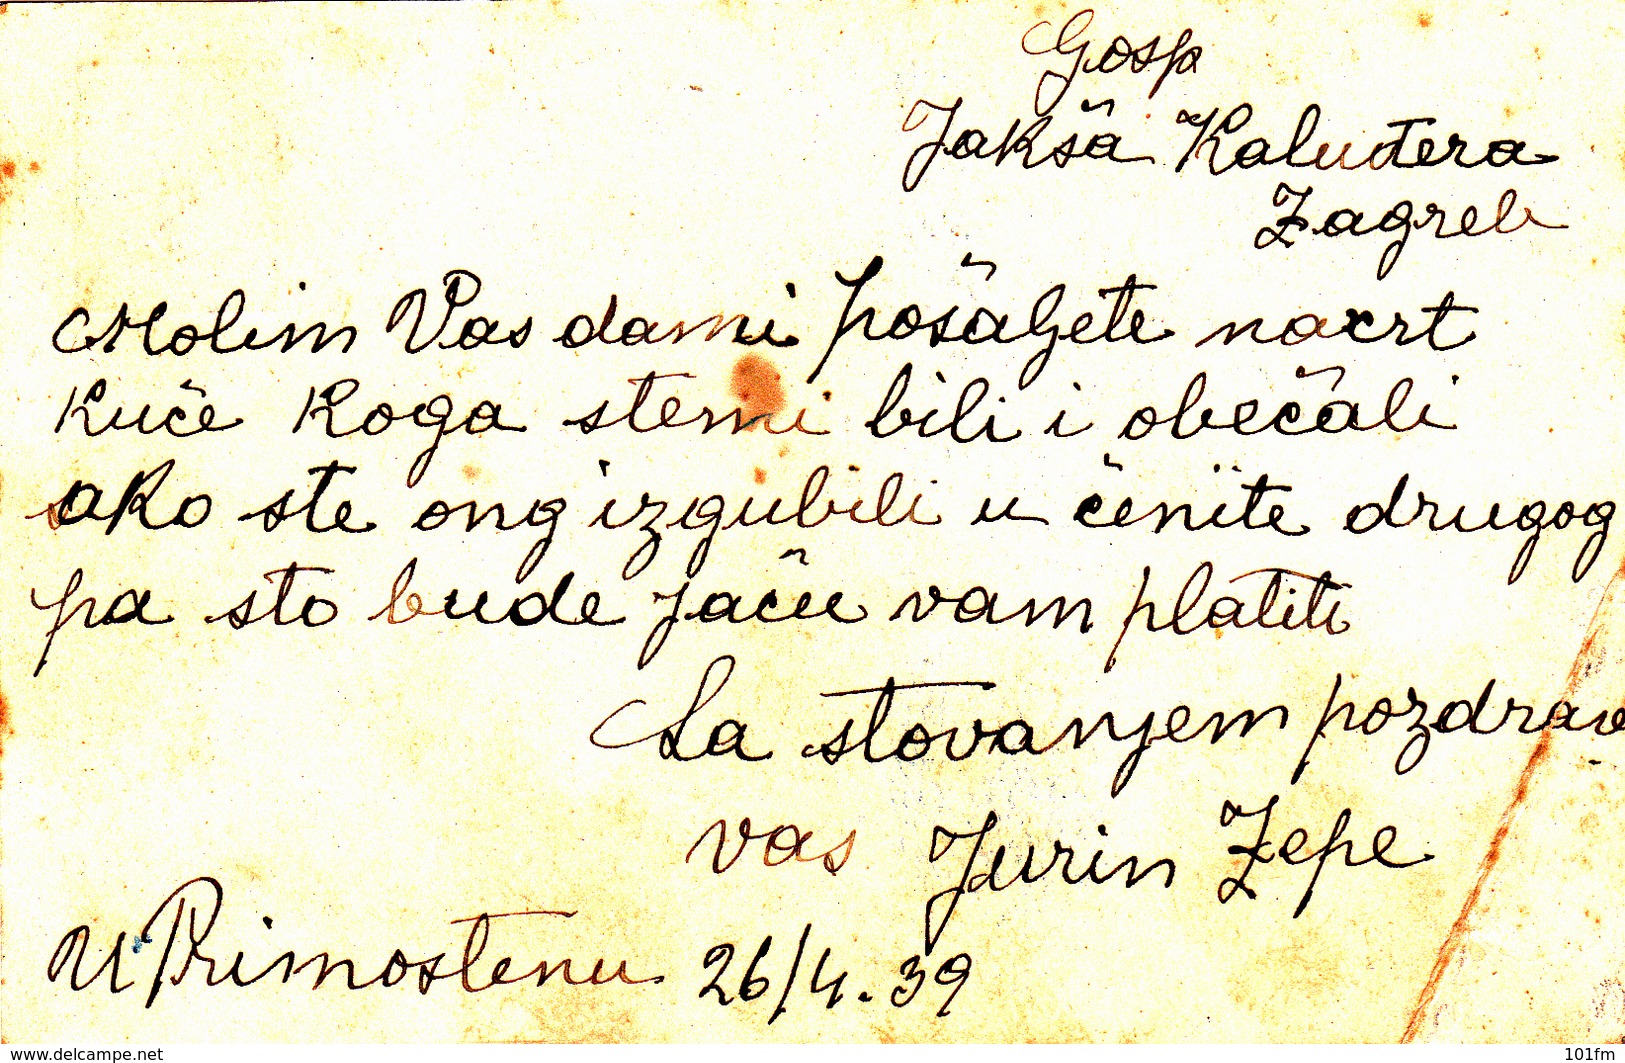 Gosp
Jakša Kaluđera
Zagreb
Molim Vas dami pošaljete nacrt
kuče koga stemi bili i obečali
ako ste ong izgubili u činite drugog
pa sto bude jaču vam platiti
Sa stovanjem pozdrav
vas Jurin Zepe
U Primostenu 26/4.39
www.delcampe.net
101fm